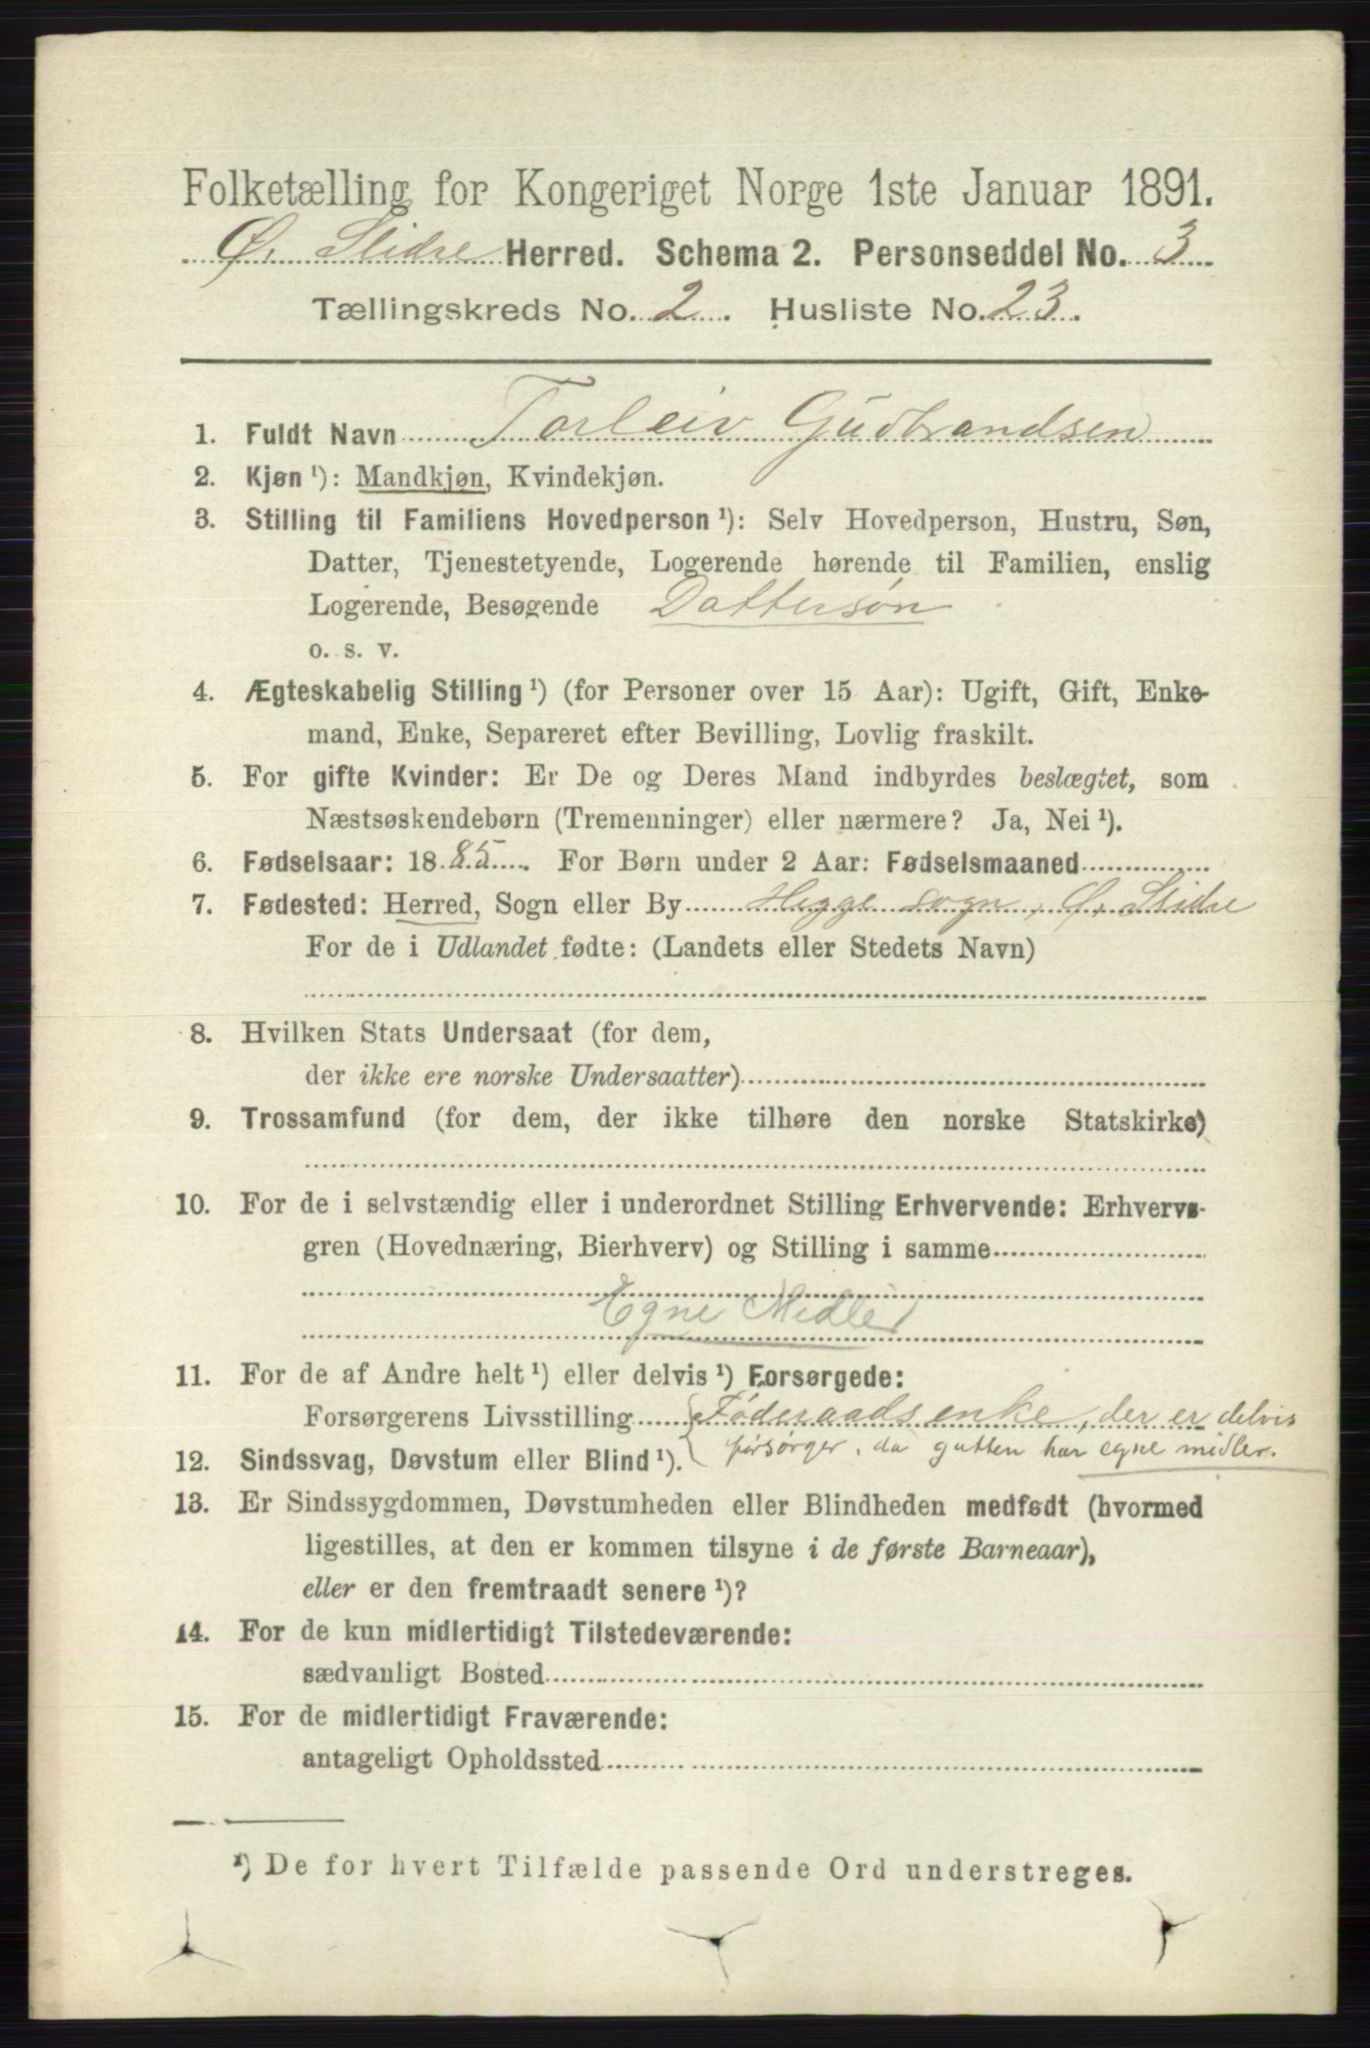 Folketælling for Kongeriget Norge 1ste Januar 1891.
Ø. Slidre Herred. Schema 2. Personseddel No. 3
Tællingskreds No. 2. Husliste No. 23.
1. Fuldt Navn Torleiv Gudbrandsen
2. Kjøn ¹): Mandkjøn, Kvindekjøn.
3. Stilling til Familiens Hovedperson ¹): Selv Hovedperson, Hustru, Søn,
Datter, Tjenestetyende, Logerende hørende til Familien, enslig
Logerende, Besøgende Dattersøn
o. s. v.
4. Ægteskabelig Stilling ¹) (for Personer over 15 Aar): Ugift, Gift, Enke-
mand, Enke, Separeret efter Bevilling, Lovlig fraskilt.
5. For gifte Kvinder: Er De og Deres Mand indbyrdes beslægtet, som
Næstsøskendebørn (Tremenninger) eller nærmere? Ja, Nei ¹).
6. Fødselsaar: 1885. For Børn under 2 Aar: Fødselsmaaned
7. Fødested: Herred, Sogn eller By Hegge sogn, Ø. Slidre
For de i Udlandet fødte: (Landets eller Stedets Navn)
8. Hvilken Stats Undersaat (for dem,
der ikke ere norske Undersaatter)
9. Trossamfund (for dem, der ikke tilhøre den norske Statskirke)
10. For de i selvstændig eller i underordnet Stilling Erhvervende: Erhvervs-
gren (Hovednæring, Bierhverv) og Stilling i samme
Egne Midler
11. For de af Andre helt ¹) eller delvis ¹) Forsørgede:
Forsørgerens Livsstilling Føderaadsenke, der er delvis
forsørger, da gutten har egne midler.
12. Sindssvag, Døvstum eller Blind ¹).
13. Er Sindssygdommen, Døvstumheden eller Blindheden medfødt (hvormed
ligestilles, at den er kommen tilsyne i de første Barneaar),
eller er den fremtraadt senere ¹)?
14. For de kun midlertidigt Tilstedeværende:
sædvanligt Bosted
15. For de midlertidigt Fraværende:
antageligt Opholdssted
¹) De for hvert Tilfælde passende Ord understreges.